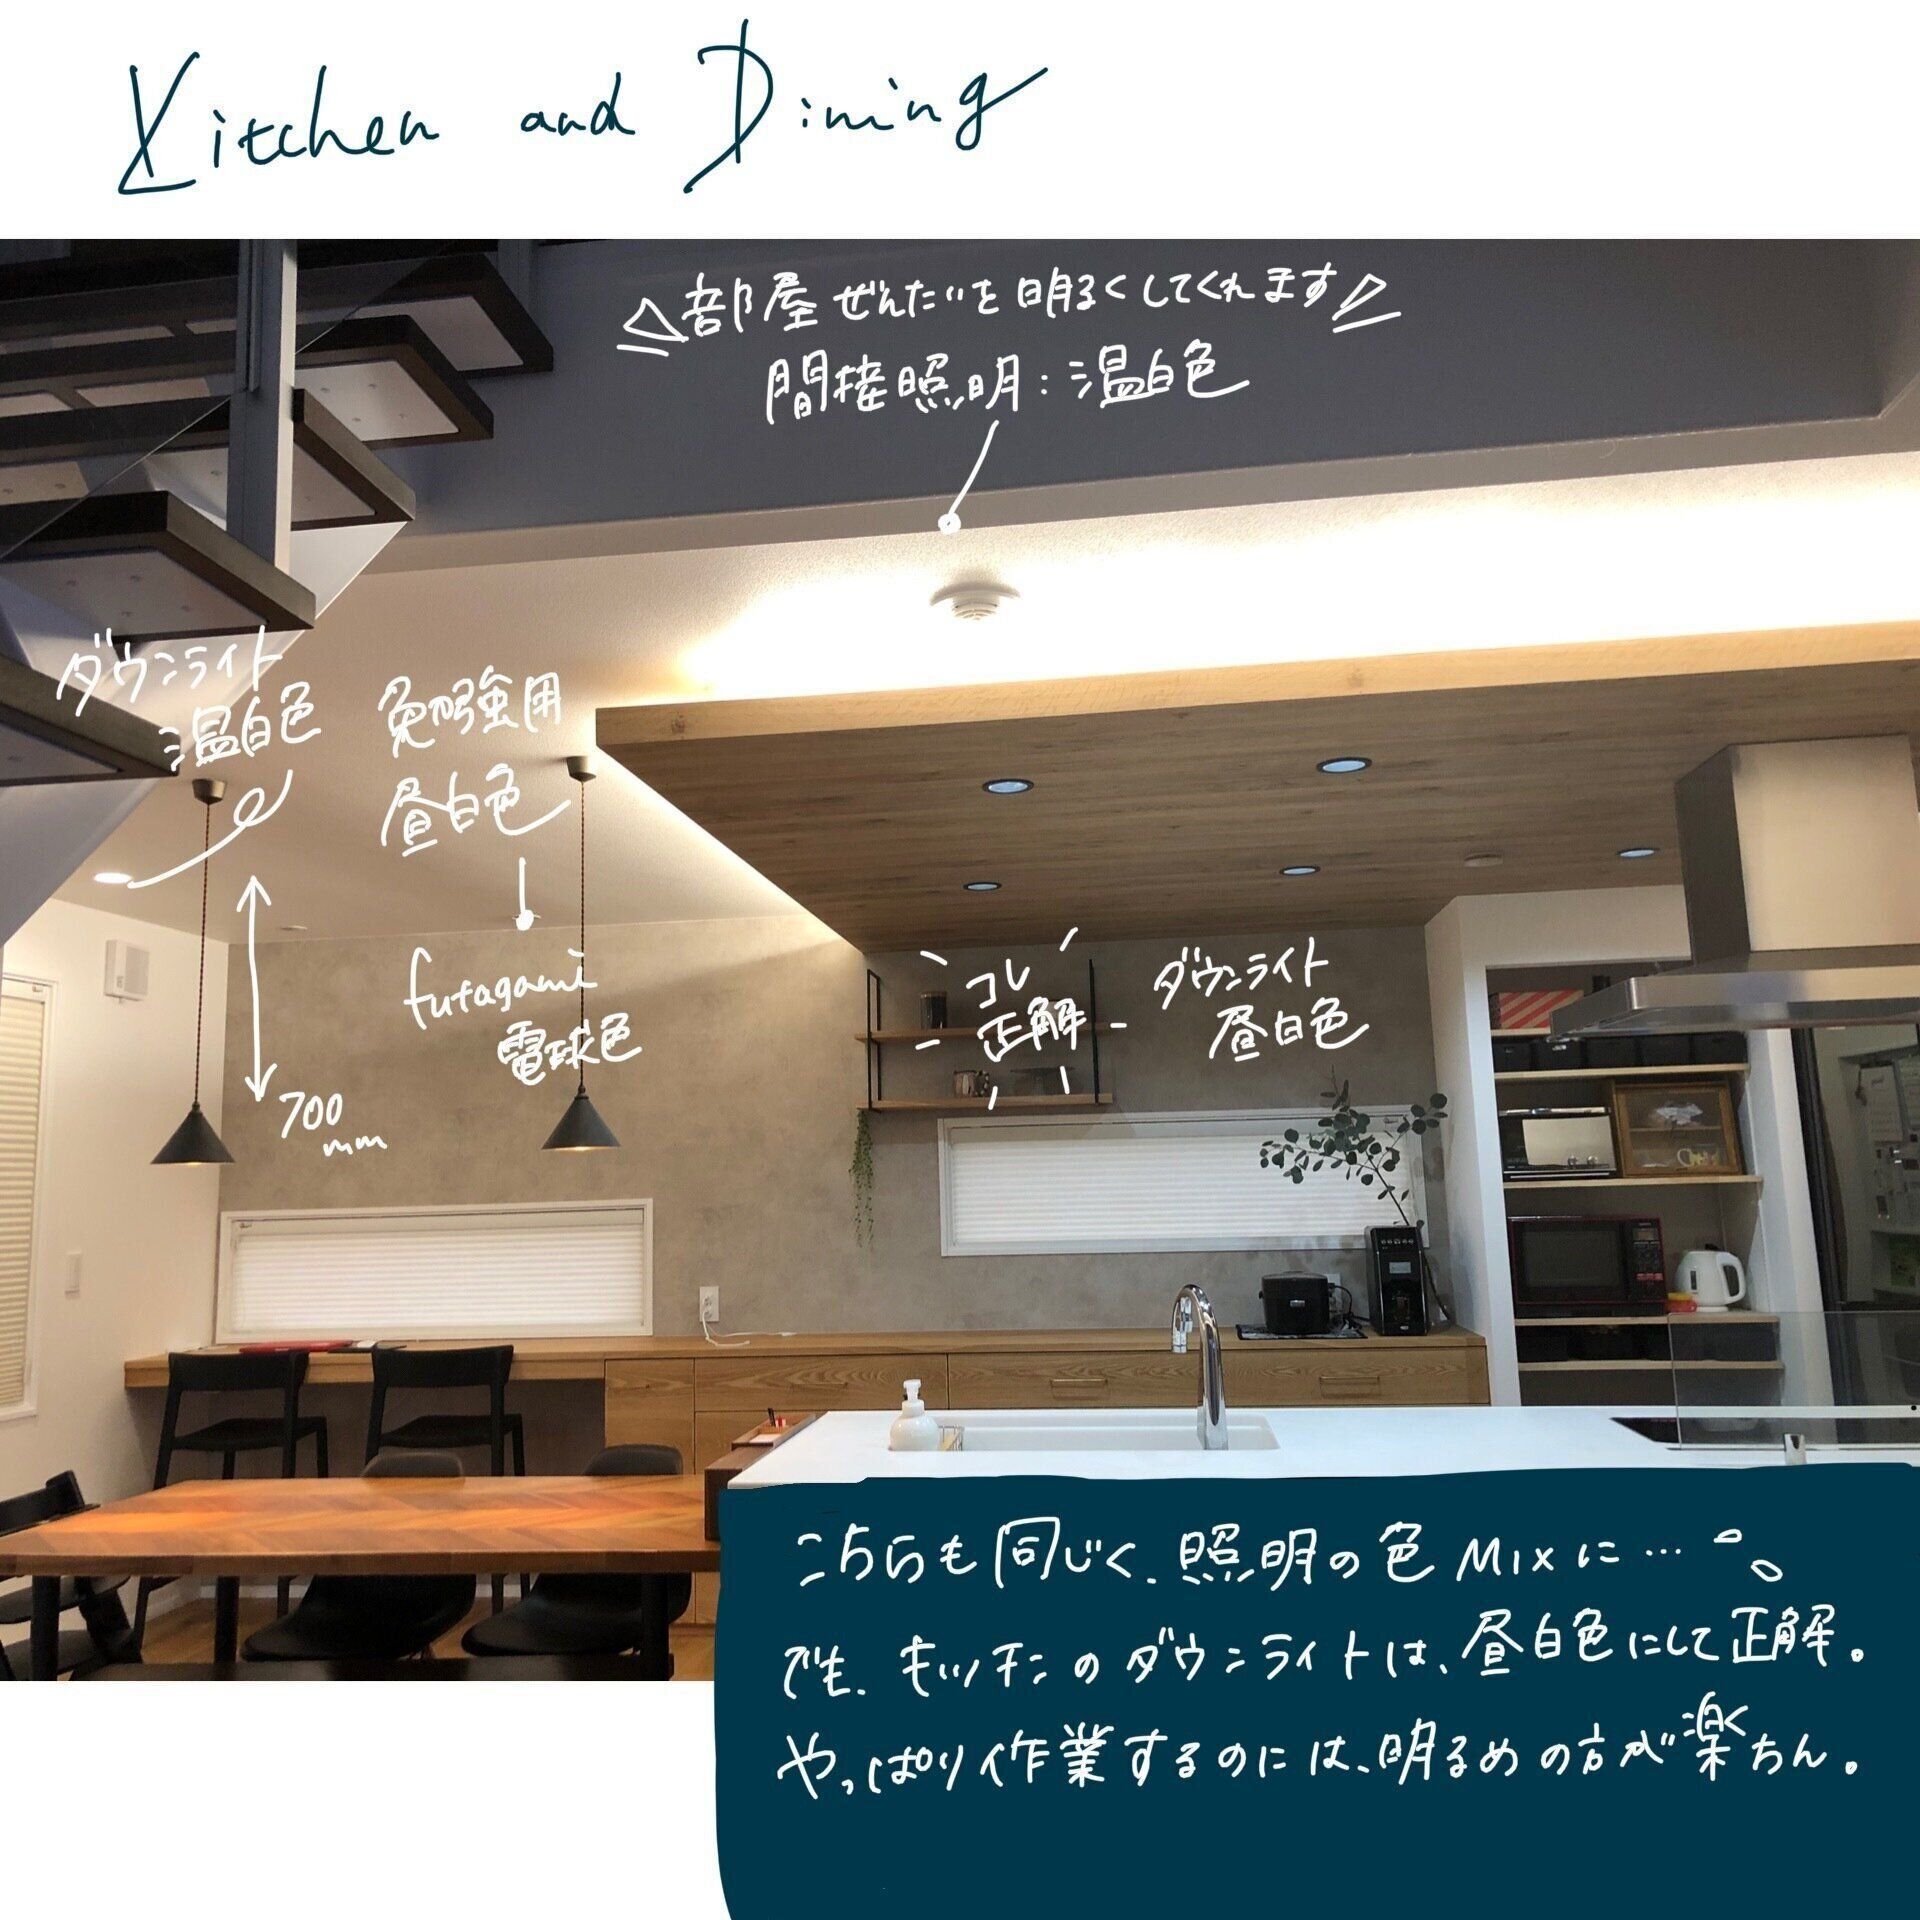 Kitchen and Dining
部屋ぜんたいを明るくしてくれます
間接照明:温白色
ダウンライト
温白色
勉強用
昼白色
futagami
電球色
700
mm
コレ
正解
ダウンライト
昼白色
こちらも同じく、照明の色MIXに…
でも、キッチンのダウンライトは、昼白色にして正解。
やっぱり作業するのには、明るめの方が楽ちん。